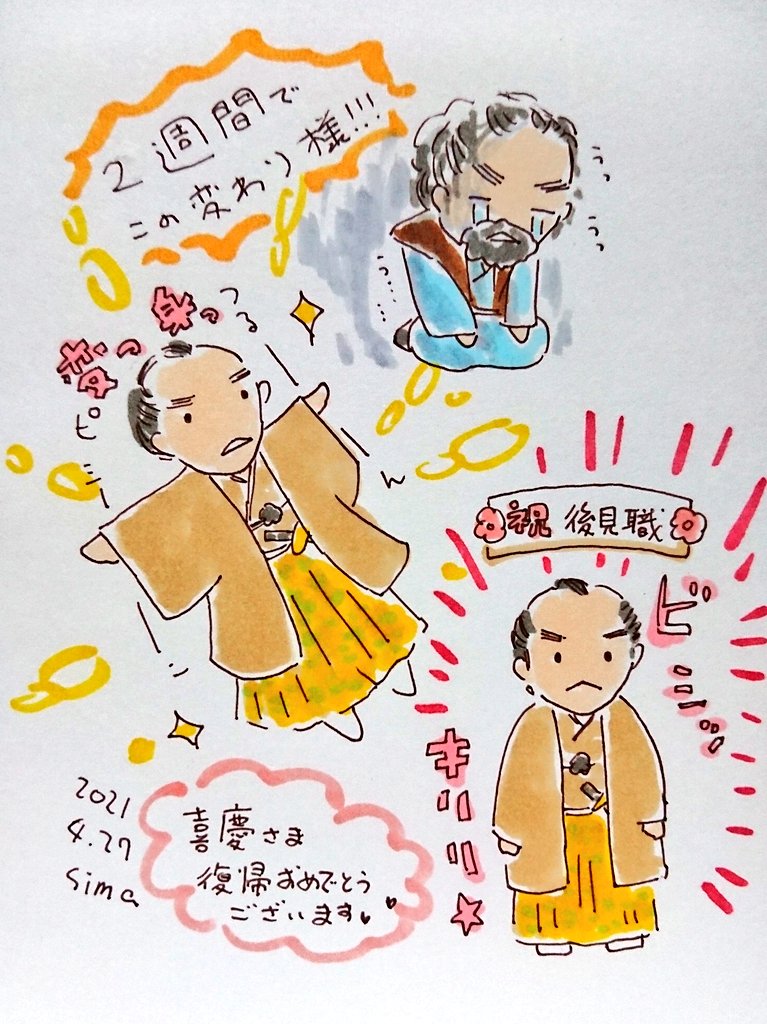 2週間で
この変わり様!!!
うっ
うっ
う…
若っ 若っ
つる
ピ
ん
祝 後見職
ビシッ
キリリ☆
2021
4.27
sima
喜慶さま
復帰おめでとう
ございます♥♥